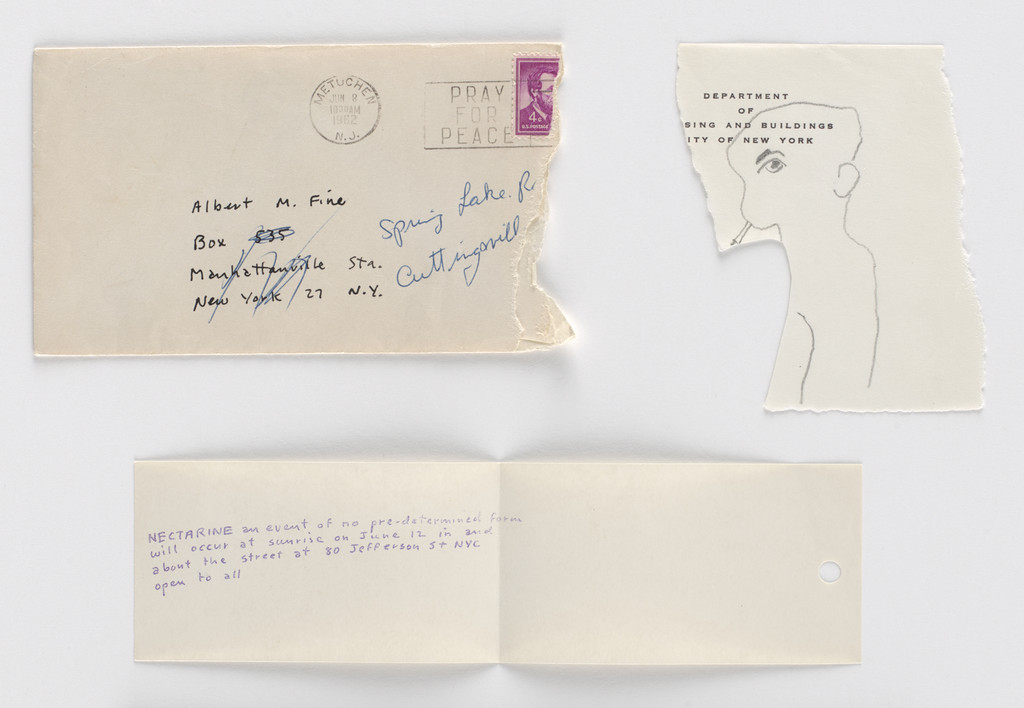 METUCHEN
JUN 8
1030AM
1962
N.J.
PRAY
FOR
PEACE
4¢
U.S. POSTAGE
Albert M. Fine
Box 535
Manhattanville Sta.
New York 27 N.Y.
Spring Lake. R
Cuttingsvill
DEPARTMENT
OF
SING AND BUILDINGS
ITY OF NEW YORK
NECTARINE an event of no pre-determined form
will occur at sunrise on June 12 in and
about the street at 80 Jefferson St NYC
open to all